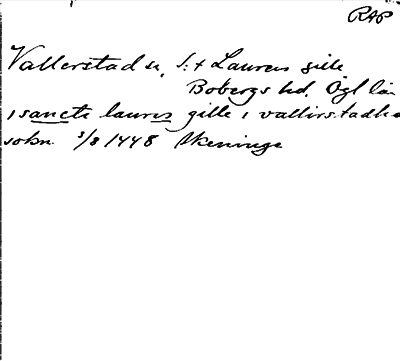 RAP
Vallerstad sn, S:t Laurens gille
Bobergs hd. Ögl län
i sancte laurens gille i vallirstadha
sokn 3/8 1448 Skeninge